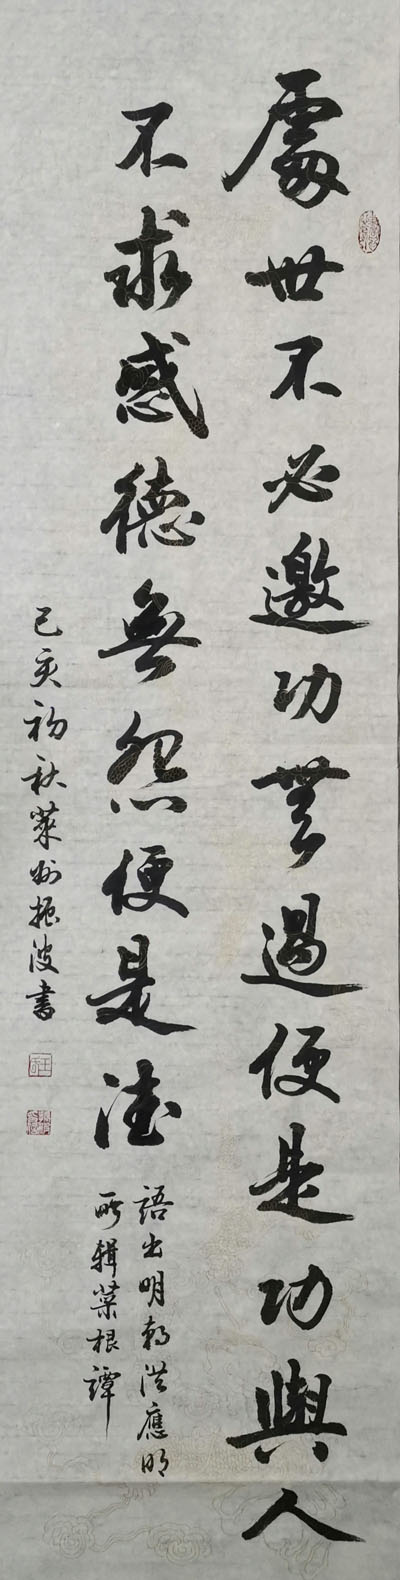 處世不必邀功無過便是功與人
不求感德無怨便是德
語出明朝洪應明
所輯菜根譚
己亥初秋萊州振波書